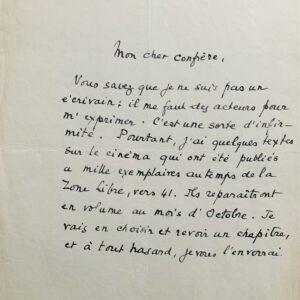 Mon cher confrère,
Vous savez que je ne suis pas un
écrivain ; il me faut des acteurs pour
m'exprimer. C'est une sorte d'infir-
mité. Pourtant, j'ai quelques textes
sur le cinéma qui ont été publiés
a mille exemplaires au temps de la
Zone Libre, vers 41. Ils reparaîtront
en volume au mois d'Octobre. Je
vais en choisir et revoir un chapitre,
et à tout hasard, je vous l'enverrai